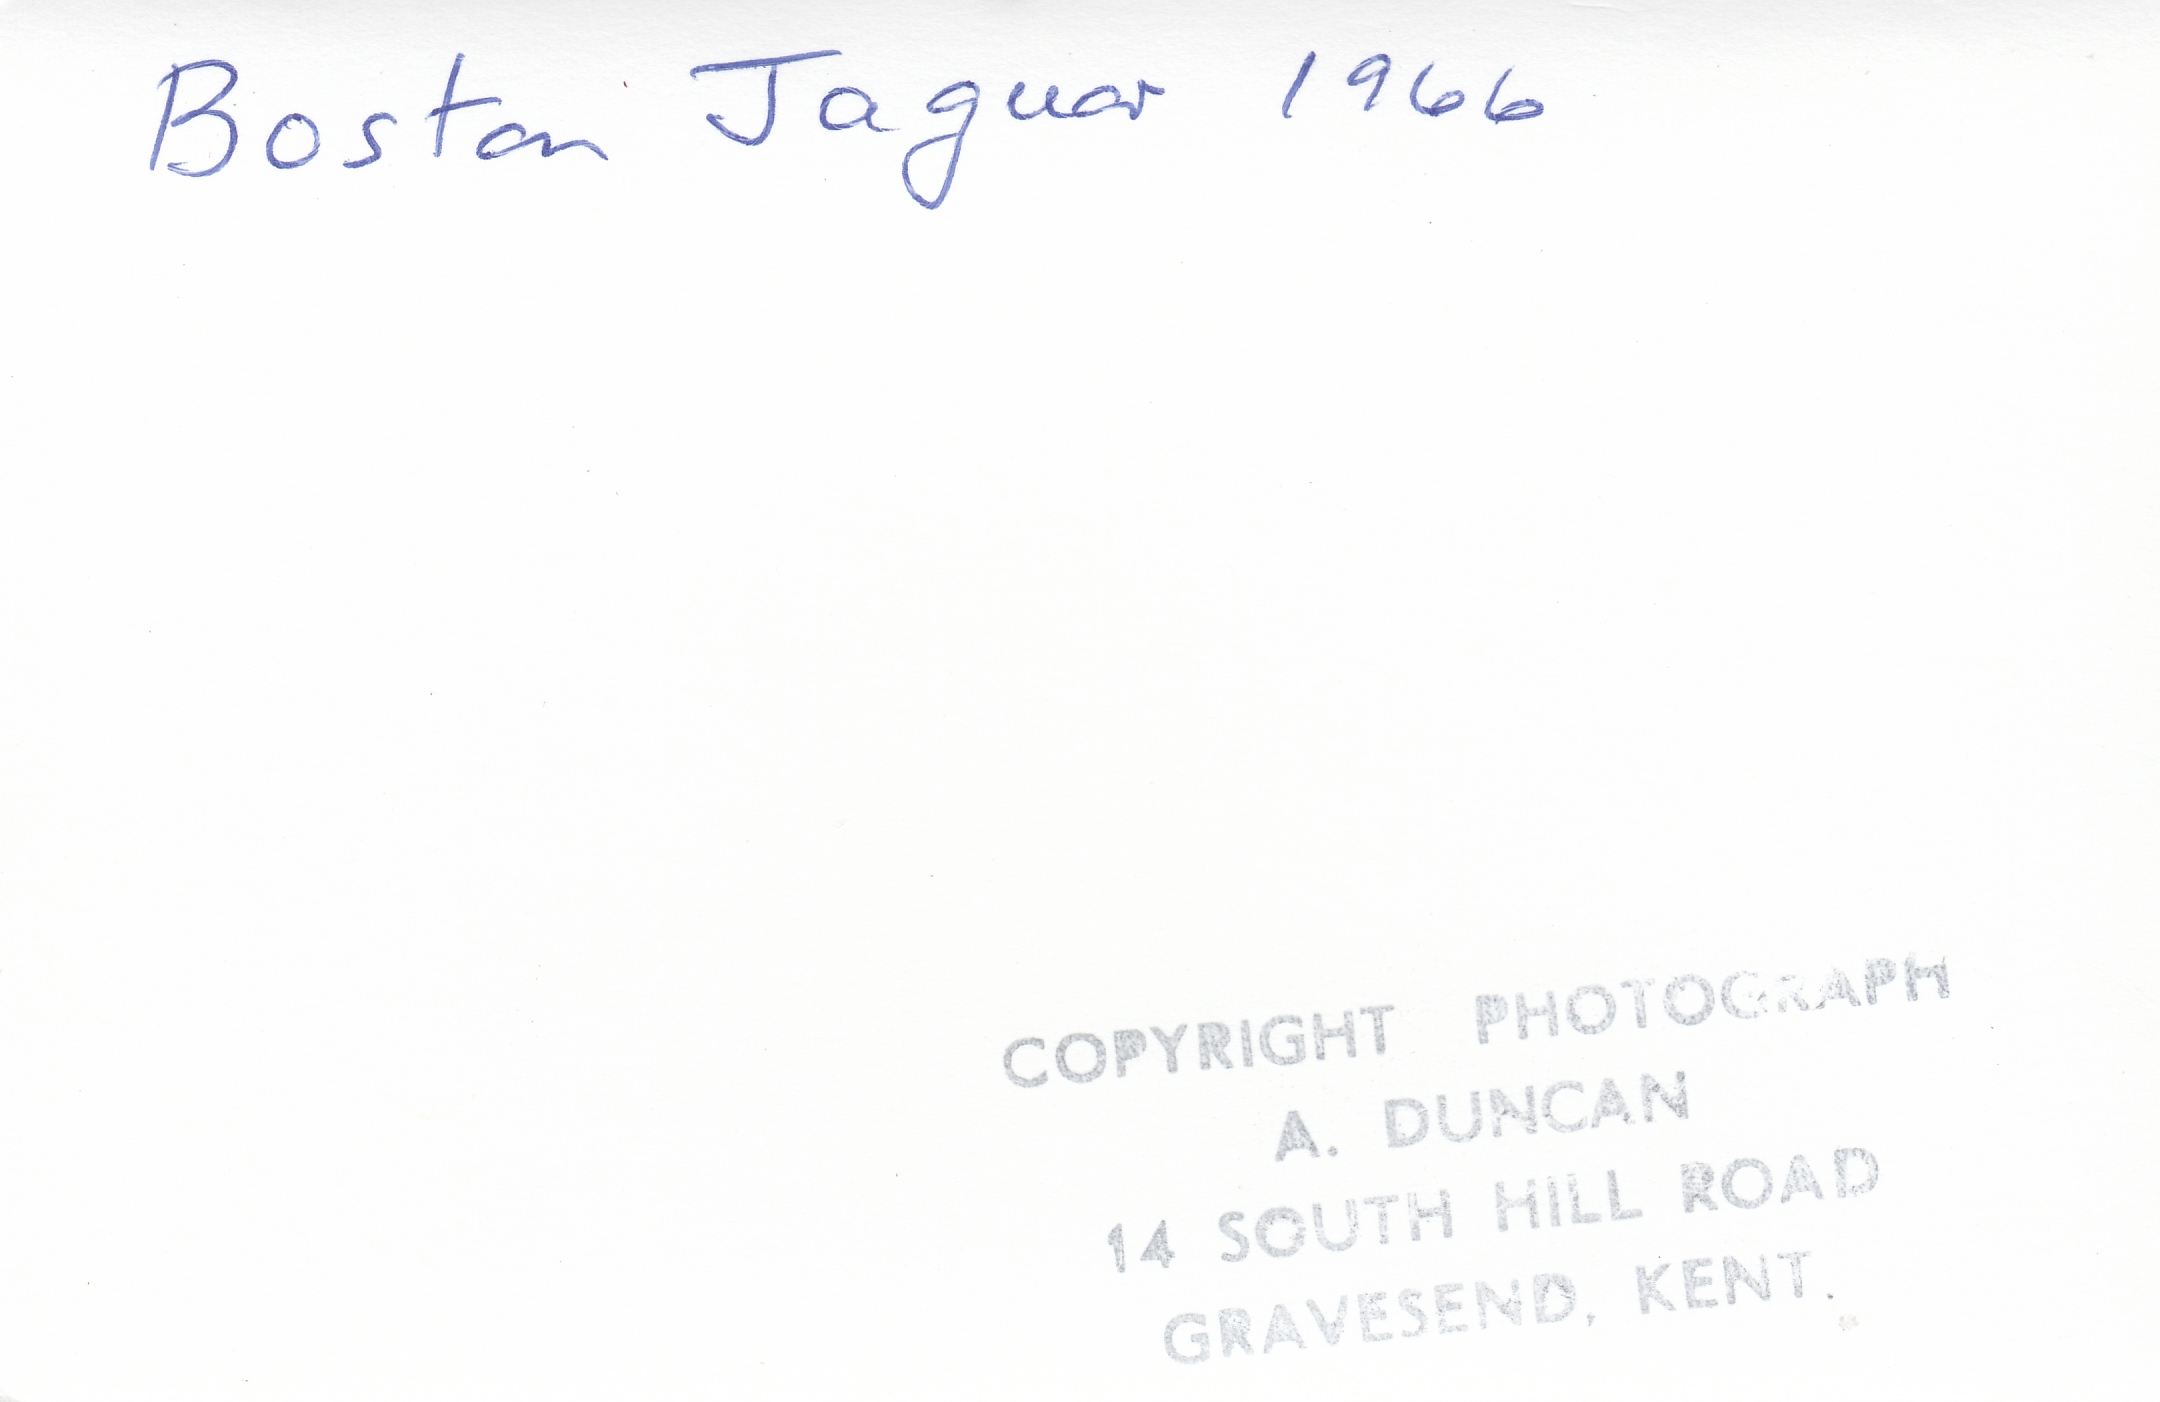 Boston Jaguar 1966
COPYRIGHT PHOTOGRAPH
A. DUNCAN
14 SOUTH HILL ROAD
GRAVESEND, KENT.